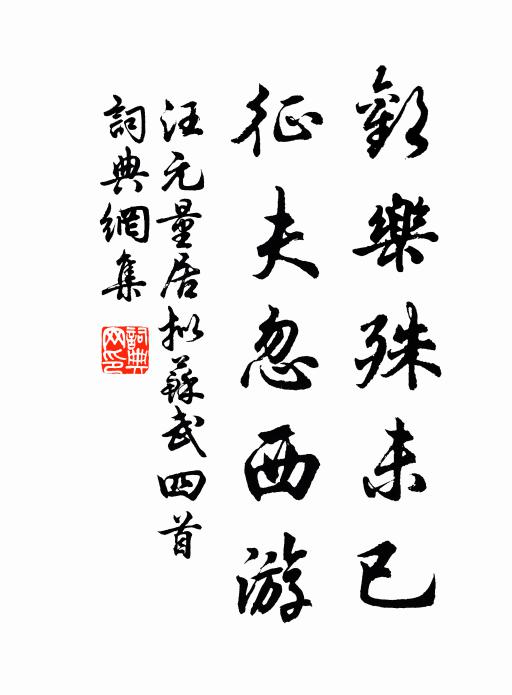 歡樂殊未已
征夫忽西游
汪元量居擬蘇武四首
詞典網集
詞典网印